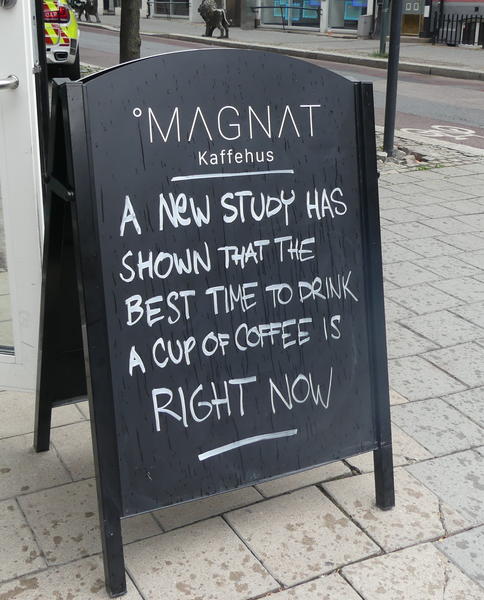 °MAGNAT
Kaffehus
A NEW STUDY HAS
SHOWN THAT THE
BEST TIME TO DRINK
A CUP OF COFFEE IS
RIGHT NOW